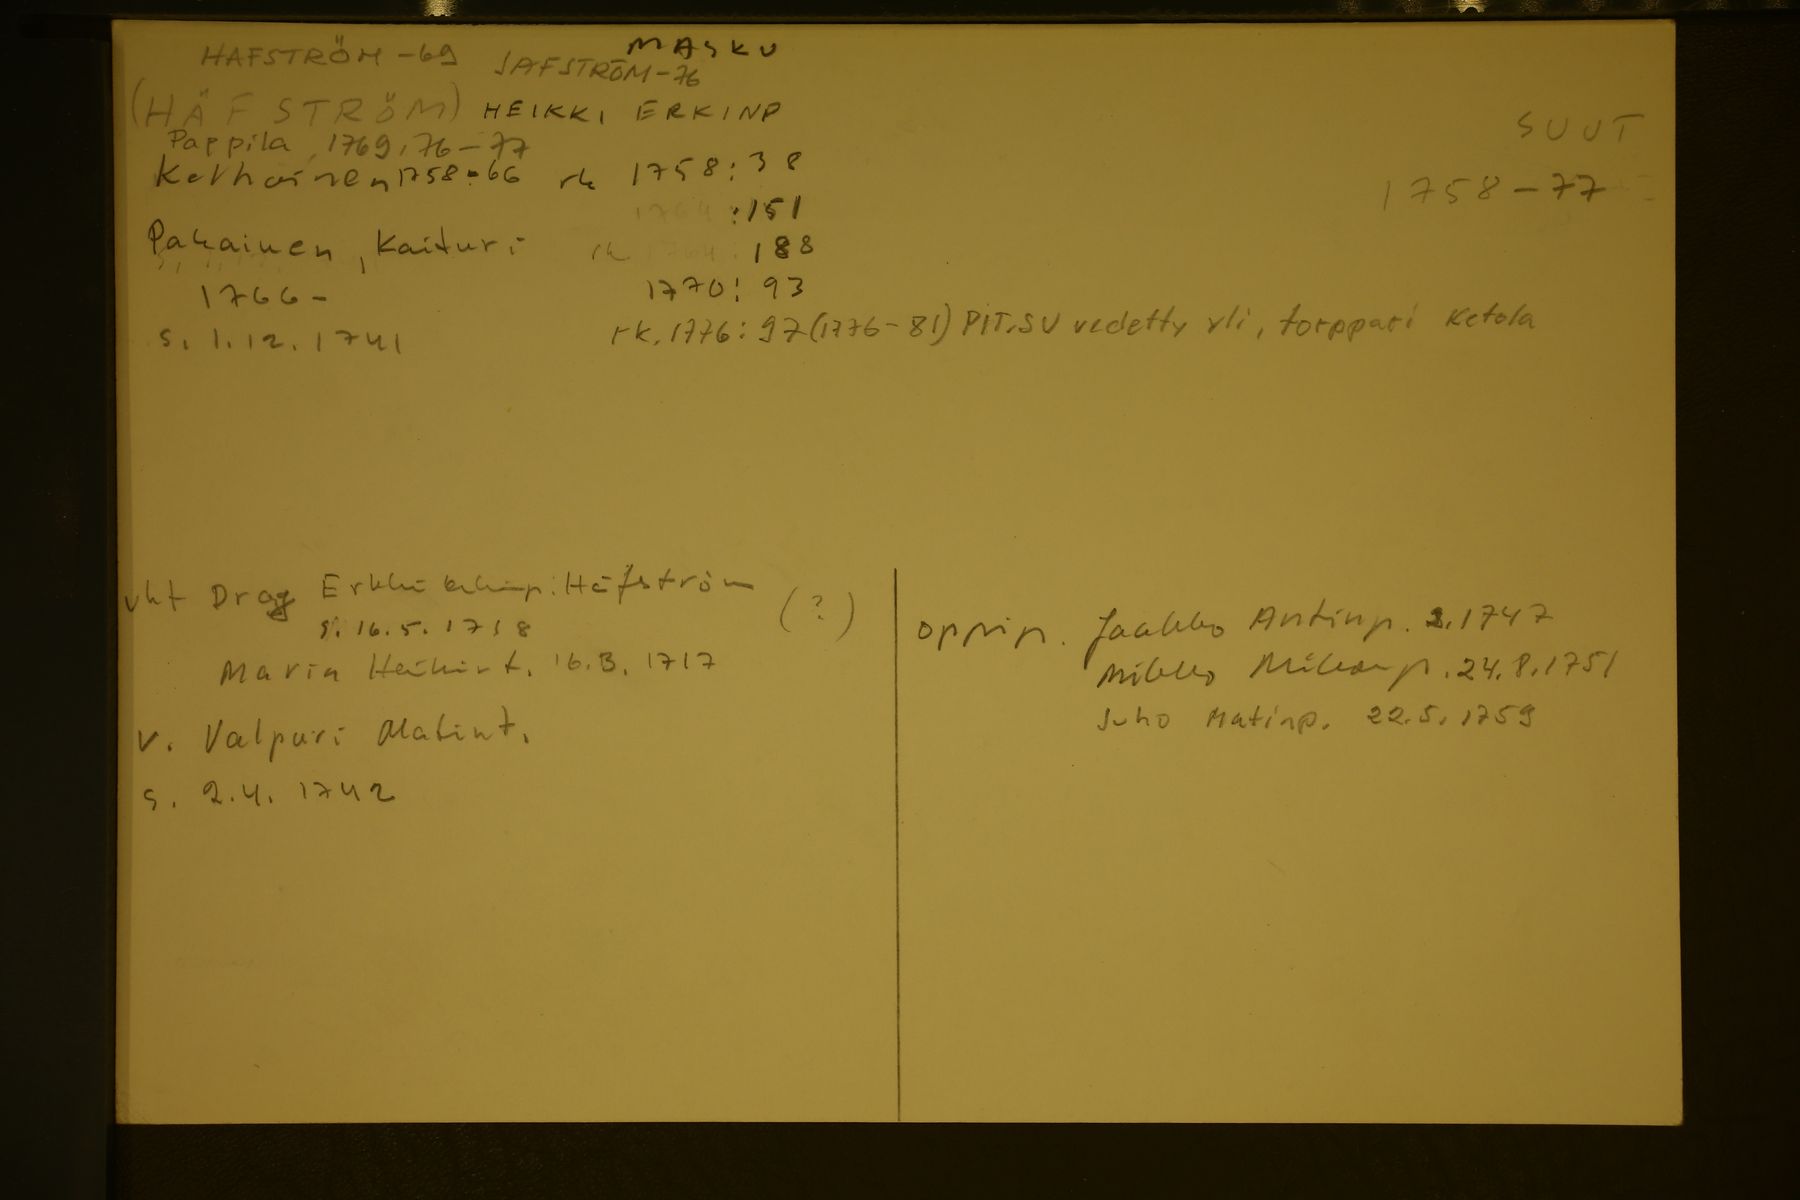 MASKU
HAFSTRÖM -69 SAFSTRÖM-76
(HÄFSTRÖM) HEIKKI ERKINP
SUUT
Pappila, 1769, 76-77
Kethainen 1758-66 rk 1758:38
1758-77
1764 :151
Pakainen, Kaituri rk 1764: 188
1766- 1770: 93
s. 1.12.1741 rk. 1776: 97 (1776-81) PIT.SU vedetty yli, torppari Ketola
vht Drag Erkki Häfström (?)
s. 16.5.1718
Maria Heikint. 16.3.1717
v. Valpuri Matint.
s. 2.4.1742
oppip. Jaakko Antinp. s. 1747
Mikko Mikonp. 24.8.1751
Juho Matinp. 22.5.1759